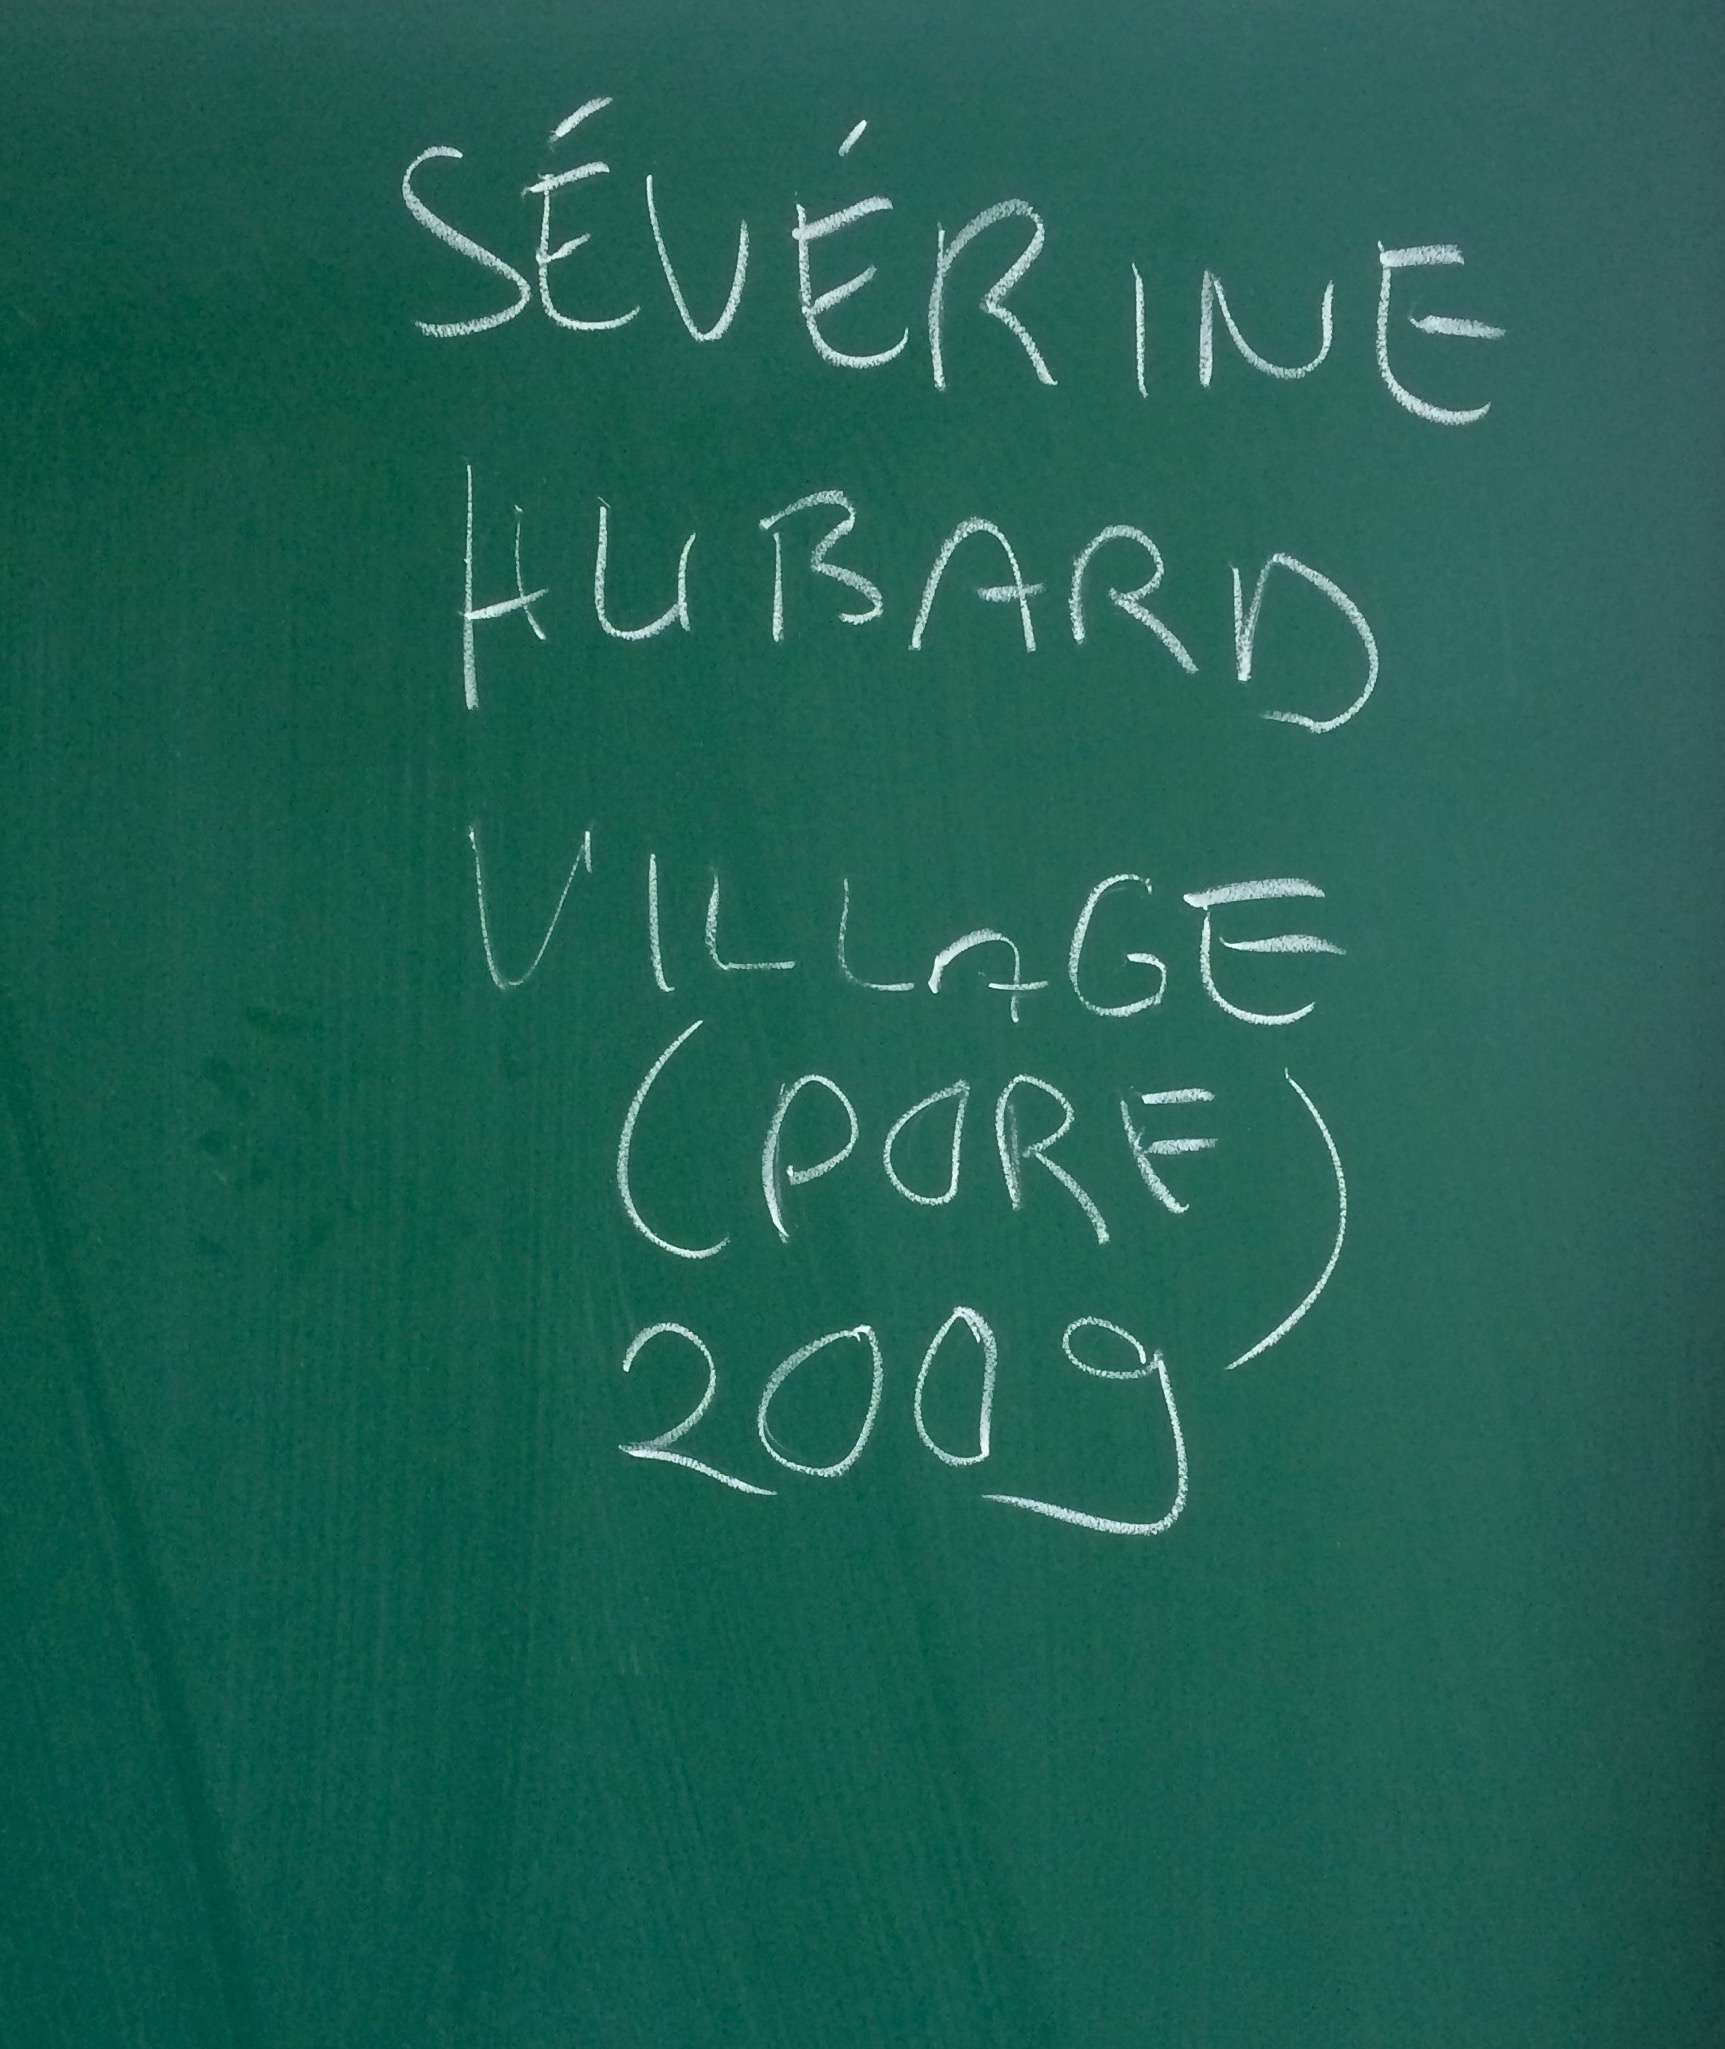 SÉVÉRINE
HUBARD
VILLAGE
(PORF)
2009